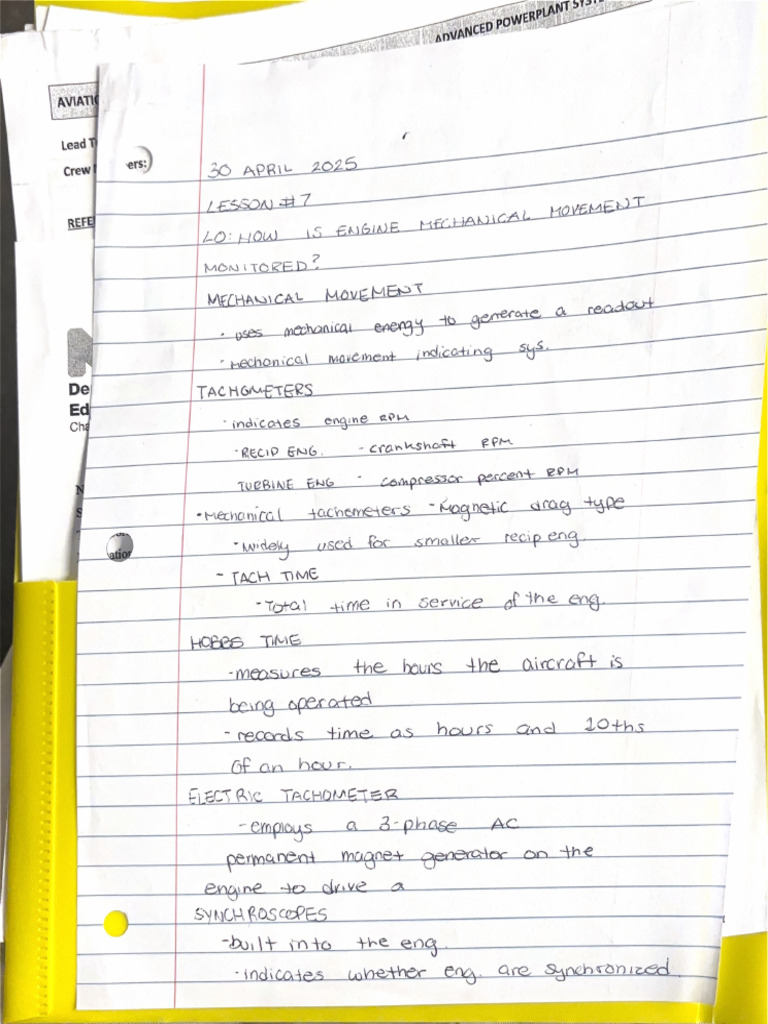 ADVANCED POWERPLANT SYST
AVIATIO
Lead T
Crew
ers:
REFE
De
Ed
Cha
N
S
ation
30 APRIL 2025
LESSON #7
LO: HOW IS ENGINE MECHANICAL MOVEMENT
MONITORED?
MECHANICAL MOVEMENT
· uses mechanical energy to generate a readout
· Mechanical movement indicating sys.
TACHOMETERS
· indicates engine RPM
· RECIP ENG. - crankshaft RPM
TURBINE ENG - compressor percent RPM
· Mechanical tachometers - Magnetic drag type
· Widely used for smaller recip eng.
- TACH TIME
- Total time in service of the eng.
HOBBS TIME
- measures the hours the aircraft is
being operated
- records time as hours and 10ths
of an hour.
ELECTRIC TACHOMETER
- employs a 3-phase AC
permanent magnet generator on the
engine to drive a
SYNCHROSCOPES
- built into the eng.
· indicates whether eng. are synchronized.